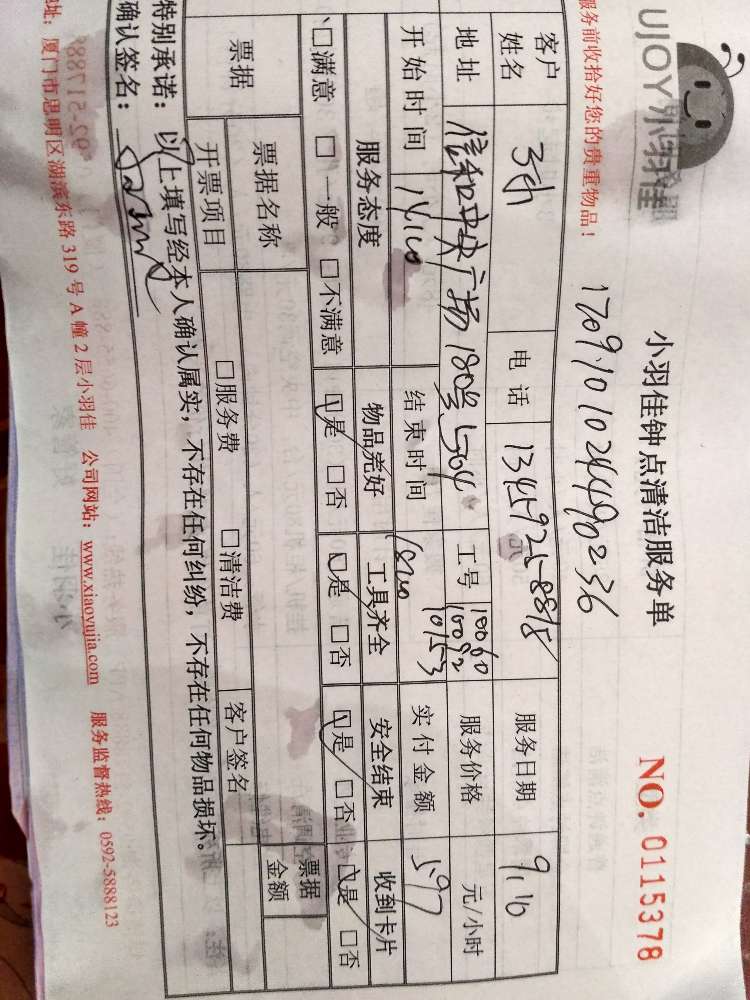 UJOY小羽佳
服务前收拾好您的贵重物品!
小羽佳钟点清洁服务单
NO. 0115378
1709101024490236
客户姓名
电话 13459258818
服务日期 9.10
地址 信和中央广场180号504
工号 10060 10092 10153
服务价格 元/小时
开始时间 14:00
结束时间 18:00
实付金额 597
服务态度 物品完好 工具齐全 安全结束 收到卡片
□满意 □一般 □不满意 □是 □否 □是 □否 □是 □否 □是 □否
票据 票据名称 客户签名 票据金额
开票项目 □服务费 □清洁费
特别承诺:以上填写经本人确认属实,不存在任何纠纷,不存在任何物品损坏。
确认签名:
地址:厦门市思明区湖滨东路319号A幢2层小羽佳 公司网站:www.xiaoyujia.com 服务监督热线:0592-5888123